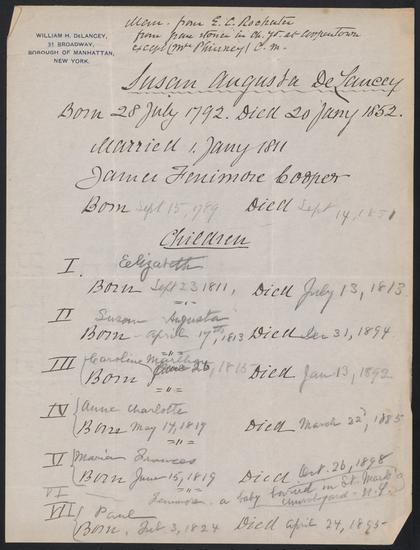 WILLIAM H. DeLANCEY,
31 BROADWAY,
BOROUGH OF MANHATTAN,
NEW YORK.
Mem. from E. C. Rochester
from grave stones in ch. yd. at Cooperstown
except (Mrs Phinney) C. M.
Susan Augusta De Lancey
Born 28 July 1792. Died 20 Jany 1852.
Married 1. Jany 1811
James Fenimore Cooper
Born Sept 15, 1789 Died Sept 14, 1851
Children
I. Elizabeth
Born Sept 23 1811, Died July 13, 1813
II Susan Augusta
Born April 17th, 1813 Died Dec 31, 1894
III Caroline Martha
Born June 26, 1815 Died Jan 13, 1892
IV Anne Charlotte
Born May 14, 1819 Died March 22d, 1885
V Maria Frances
Born June 15, 1819 Died Oct. 26, 1898
VI Fenimore a baby buried in St. Mark's
Churchyard - N.Y.
VII Paul
Born, Feb 3, 1824 Died April 24, 1895